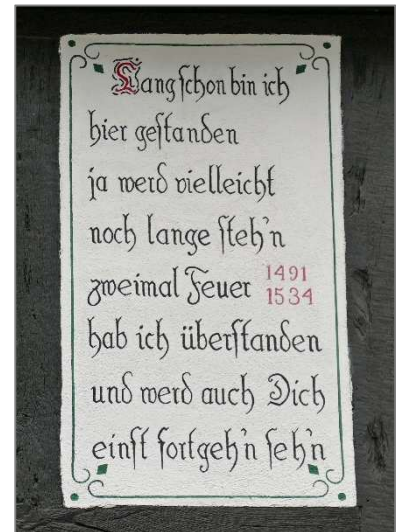 Lang schon bin ich
hier gestanden
ja werd vielleicht
noch lange steh'n
zweimal Feuer 1491
1534
hab ich überstanden
und werd auch Dich
einst fortgeh'n seh'n